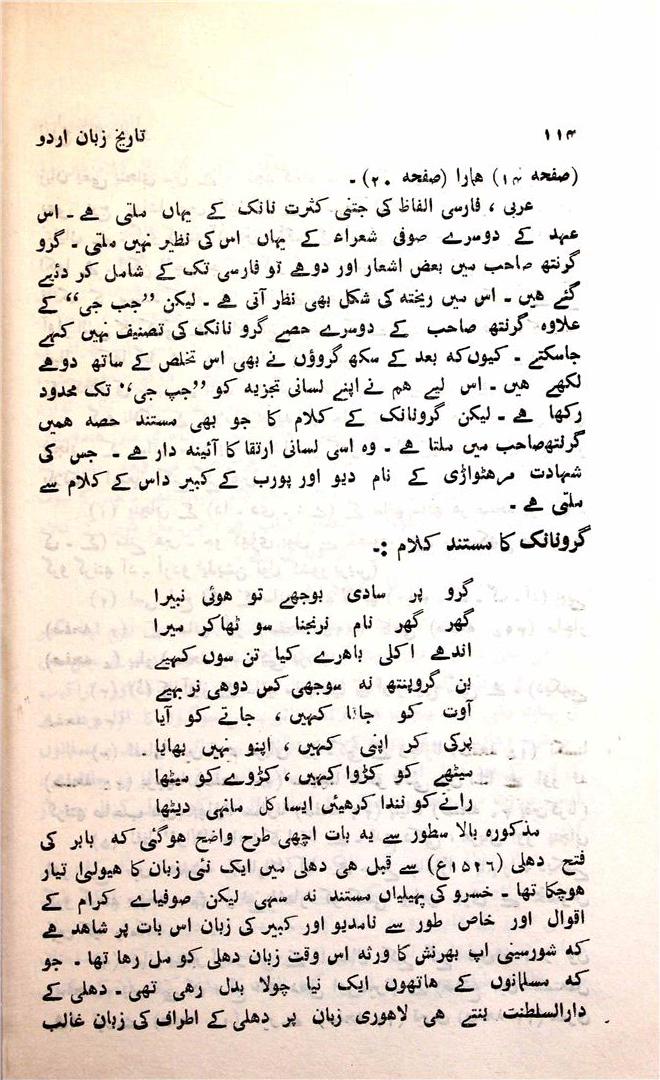 ۱۱۴ تاریخ زبان اردو
(صفحہ ۱۴) ہمارا (صفحہ ۲۰) ۔
عربی ، فارسی الفاظ کی جتنی کثرت نانک کے یہاں ملتی ہے ۔ اس
عہد کے دوسرے صوفی شعراء کے یہاں اس کی نظیر نہیں ملتی ۔ گرو
گرنتھ صاحب میں بعض اشعار اور دوہے تو فارسی تک کے شامل کر دئیے
گئے ہیں ۔ اس میں ریختہ کی شکل بھی نظر آتی ہے ۔ لیکن ”جب جی“ کے
علاوہ گرنتھ صاحب کے دوسرے حصے گرو نانک کی تصنیف نہیں کہے
جاسکتے ۔ کیوں کہ بعد کے سکھ گروؤں نے بھی اس تخلص کے ساتھ دوہے
لکھے ہیں ۔ اس لیے ہم نے اپنے لسانی تجزیہ کو ”جپ جی“ تک محدود
رکھا ہے ۔ لیکن گرونانک کے کلام کا جو بھی مستند حصہ ہمیں
گرنتھ صاحب میں ملتا ہے ۔ وہ اسی لسانی ارتقا کا آئینہ دار ہے ۔ جس کی
شہادت مرہٹواڑی کے نام دیو اور پورب کے کبیر داس کے کلام سے
ملتی ہے ۔
گرونانک کا مستند کلام :۔
گرو پر سادی بوجھے تو ہوئی نبیرا
گھر گھر نام نرنجنا سو ٹھاکر میرا
اندھے اکلی باہرے کیا تن سوں کہیے
بن گروپنتھ نہ سوجھی کس دوھی نربہے
آوت کو جاتا کہیں ، جاتے کو آیا
پرکی کر اپنی کہیں ، اپنو نہیں بھایا
میٹھے کو کڑوا کہیں ، کڑوے کو میٹھا
راتے کو نندا کرھیئں ایسا کل مانہی دیٹھا
مذکورہ بالا سطور سے یہ بات اچھی طرح واضح ہوگئی کہ بابر کی
فتح دھلی (۱۵۲۶ع) سے قبل ہی دھلی میں ایک نئی زبان کا ھیولیٰ تیار
ہوچکا تھا ۔ خسرو کی پہیلیاں مستند نہ سہی لیکن صوفیاے کرام کے
اقوال اور خاص طور سے نامدیو اور کبیر کی زبان اس بات پر شاھد ہے
کہ شورسینی اپ بھرنش کا ورثہ اس وقت زبان دھلی کو مل رہا تھا ۔ جو
کہ مسلمانوں کے ہاتھوں ایک نیا چولا بدل رھی تھی ۔ دھلی کے
دارالسلطنت بنتے ھی لاھوری زبان پر دھلی کے اطراف کی زبان غالب